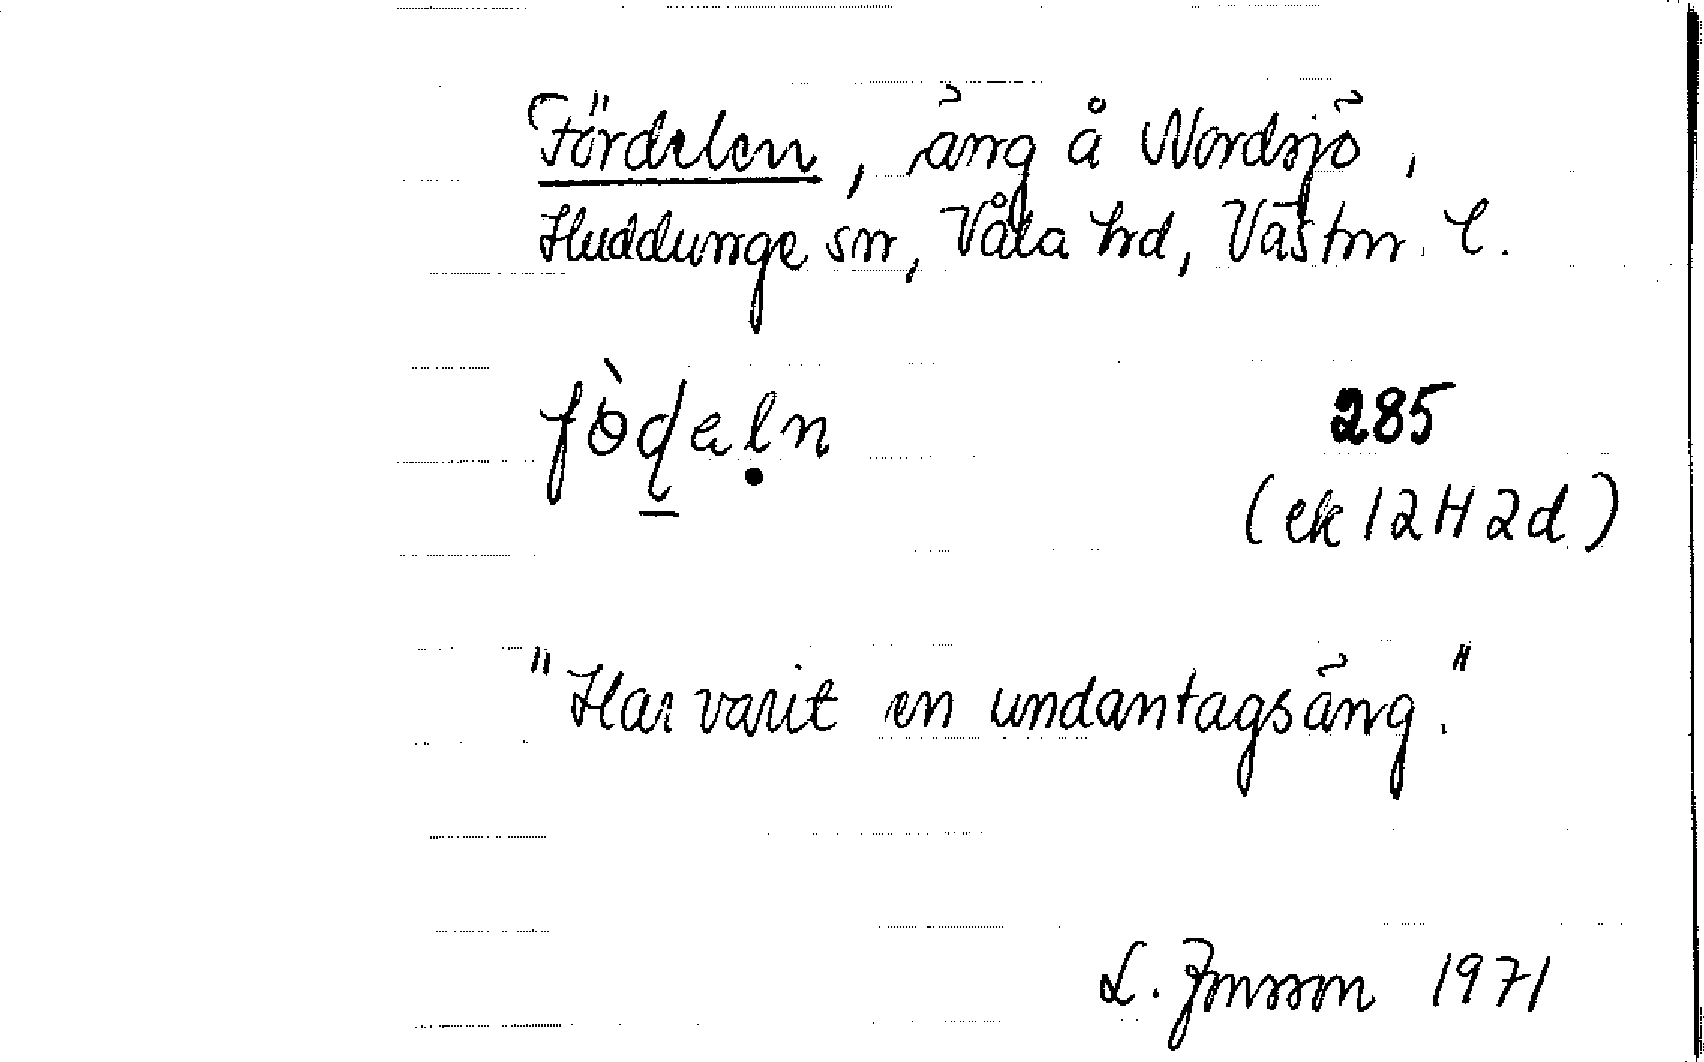 Fördelen, äng å Nordsjö,
Huddunge sn, Våla hd, Västm. l.
fɵ̀ɖeḷn
285
(ek 12H2d)
"Har varit en undantagsäng."
L. Jonsson 1971